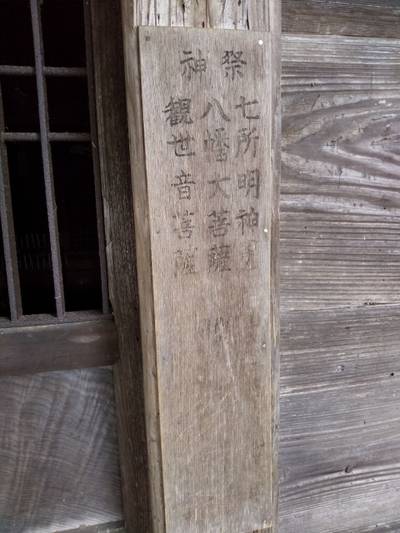 祭神
七所明神
八幡大菩薩
観世音菩薩